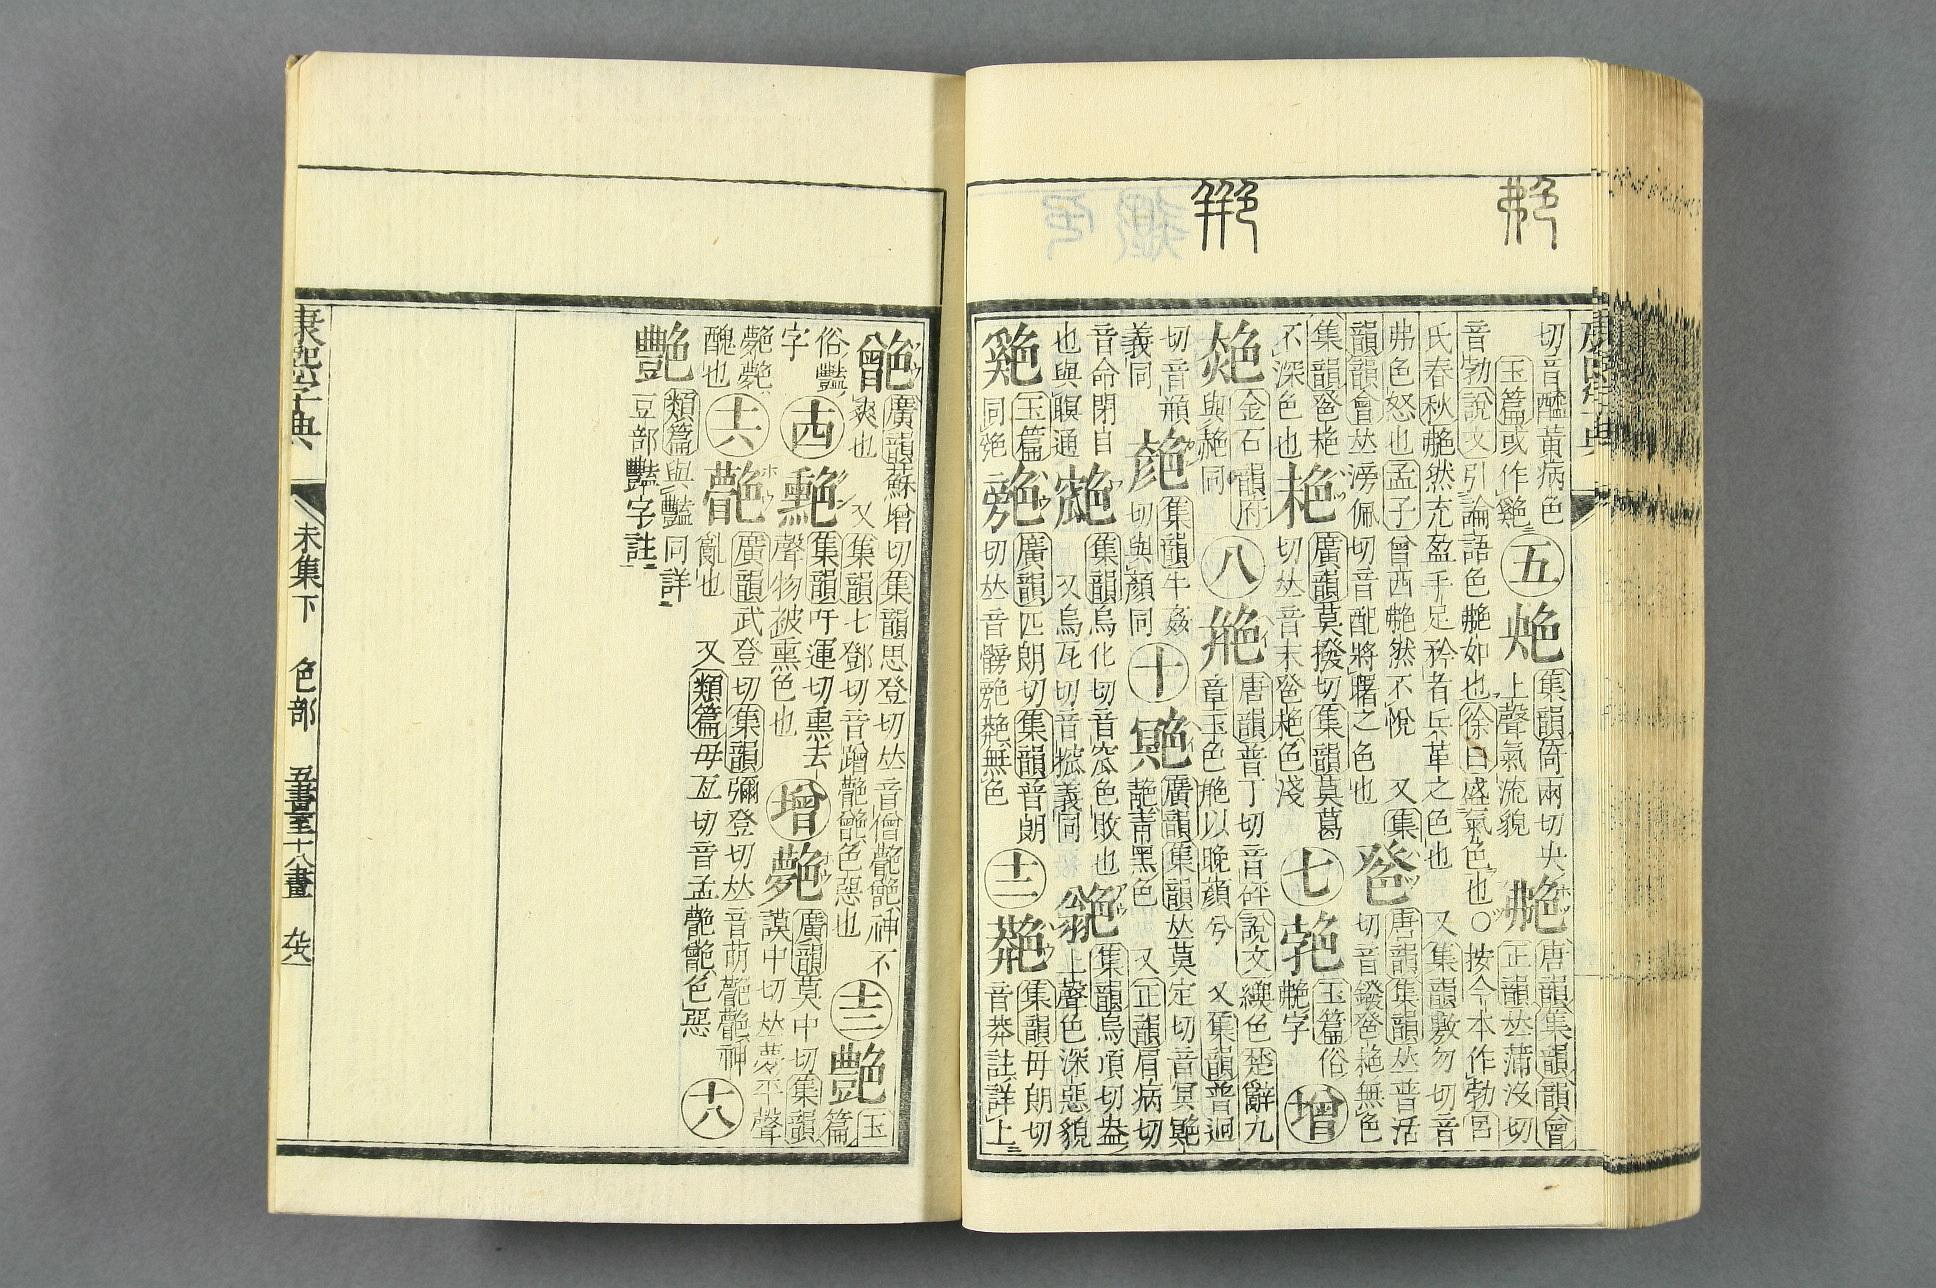 康熙字典
切音醯黃病色
玉篇或作
五
集韻倚兩切央
上聲氣流貌
艴
唐韻集韻韻會
正韻𠀤蒲沒切
音勃說文引論語色艴如也徐曰盛氣色也○按今本作勃呂
氏春秋艴然充盈手足矜者兵革之色也 又集韻敷勿切音
弗色怒也孟子曾西艴然不悅 又集
韻韻會𠀤滂佩切音配將曙之色也
唐韻集韻𠀤普活
切音鏺 無色
集韻
不深色也
廣韻莫撥切集韻莫葛
切𠀤音末 色淺
七
玉篇俗
艴字
增
金石韻府
與赩同
八
艵
唐韻普丁切音砰說文縹色楚辭九
章玉色艵以晚顏兮 又集韻普迥
切音頩
義同
集韻牛姦
切與顏同
十
䒌
廣韻集韻𠀤莫定切音冥䒌
靑黑色 又正韻眉病切
音命閉目
也與瞑通
集韻烏化切音窊色敗也
又烏瓦切音搲義同
集韻烏項切盎
上聲色深惡貌
玉篇
同
廣韻匹朗切集韻音朗
切𠀤音髈 無色
十一
集韻毋朗切
音莽註詳上
䒏
廣韻蘇增切集韻思登切𠀤音僧䒐䒏神不
爽也 又集韻七鄧切音蹭䒐䒏色惡也
十二
艷
玉篇
俗豔
字
十四
集韻吁運切熏去
聲物披熏色也
增
廣韻莫中切集韻
謨中切𠀤夢平聲
醜也
十六
䒐
廣韻武登切集韻彌登切𠀤音萌䒐䒏神
亂也 又類篇毋亙切音孟䒐䒏色惡
十八
類篇與豔同詳
豆部豔字註
康熙字典 未集下 色部 五畫至十八畫